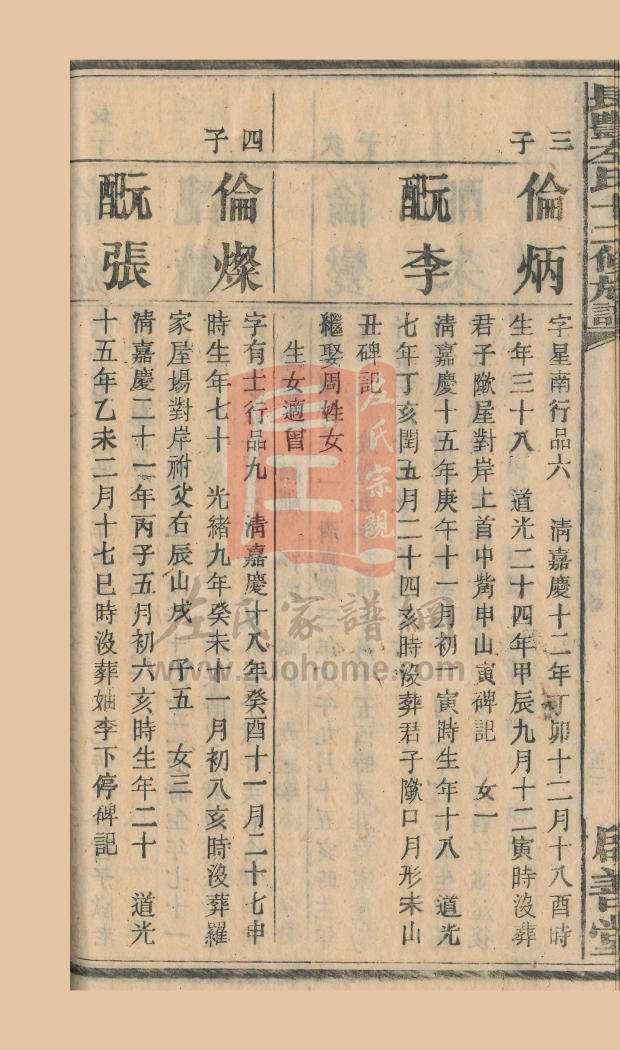 長豐左氏十二修族譜
啟善堂
三子
倫炳
字星南行品六 淸嘉慶十二年丁卯十二月十八酉時
生年三十八 道光二十四年甲辰九月十二寅時沒葬
君子隞屋對岸上首中嘴申山寅碑記 女一
配阮李
淸嘉慶十五年庚午十一月初 寅時生年十八 道光
七年丁亥閏五月二十四亥時沒葬君子隞口月形未山
丑碑記
繼娶周姓女
生女適曾
四子
倫燦
字有士行品九 淸嘉慶十八年癸酉十一月二十七申
時生年七十 光緒九年癸未十一月初八亥時沒葬羅
家屋場對岸祔父右辰山戌 子五 女三
配阮張
淸嘉慶二十一年丙子五月初六亥時生年二十 道光
十五年乙未二月十七巳時沒葬妯李下停碑記
左氏宗親
左氏家譜網
www.zuohome.com